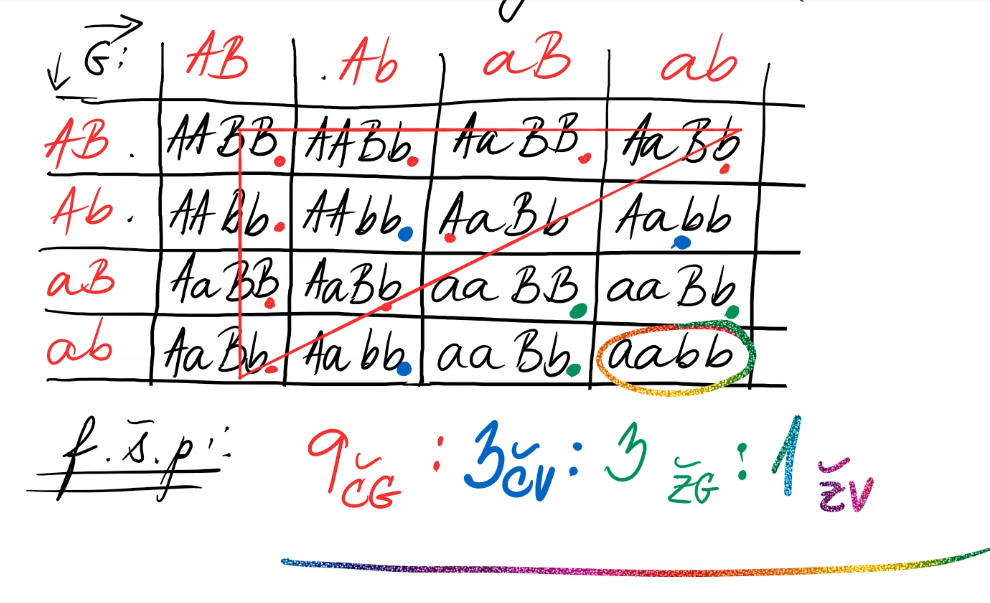 G: AB Ab aB ab
AB AABB AABb AaBB AaBb
Ab AABb AAbb AaBb Aabb
aB AaBB AaBb aaBB aaBb
ab AaBb Aabb aaBb aabb
f.š.p.: 9 ČG : 3 ČV : 3 ŽG : 1 ŽV